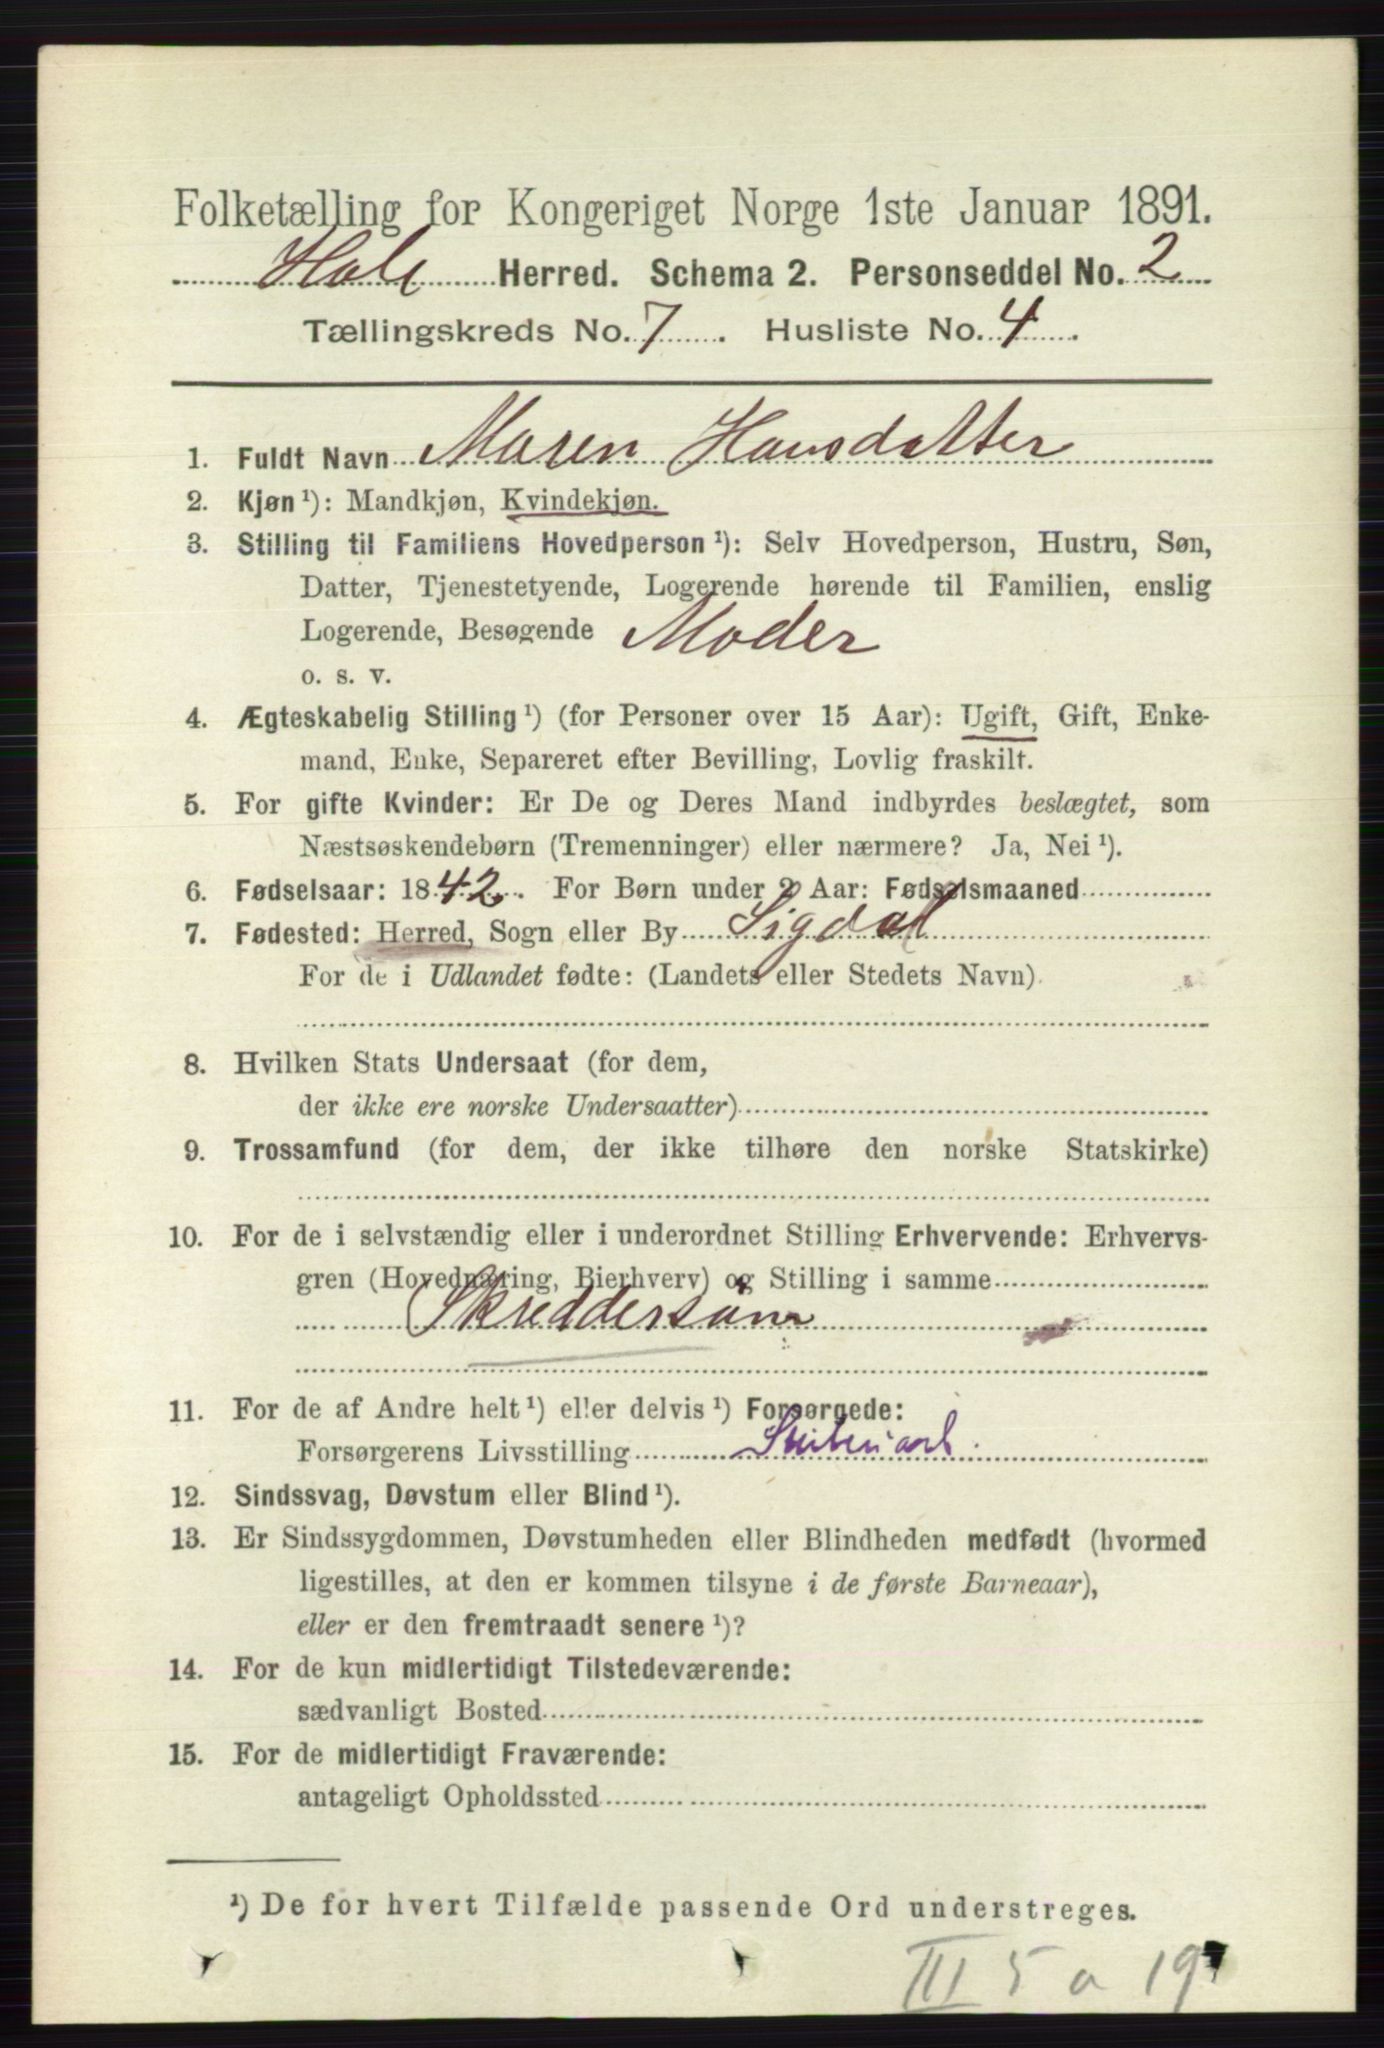 Folketælling for Kongeriget Norge 1ste Januar 1891.
Hole Herred. Schema 2. Personseddel No. 2
Tællingskreds No. 7. Husliste No. 4.
1. Fuldt Navn Maren Hansdatter
2. Kjøn ¹): Mandkjøn, Kvindekjøn.
3. Stilling til Familiens Hovedperson ¹): Selv Hovedperson, Hustru, Søn,
Datter, Tjenestetyende, Logerende hørende til Familien, enslig
Logerende, Besøgende Moder
o. s. v.
4. Ægteskabelig Stilling ¹) (for Personer over 15 Aar): Ugift, Gift, Enke-
mand, Enke, Separeret efter Bevilling, Lovlig fraskilt.
5. For gifte Kvinder: Er De og Deres Mand indbyrdes beslægtet, som
Næstsøskendebørn (Tremenninger) eller nærmere? Ja, Nei ¹).
6. Fødselsaar: 1842. For Børn under 2 Aar: Fødselsmaaned
7. Fødested: Herred, Sogn eller By Sigdal
For de i Udlandet fødte: (Landets eller Stedets Navn)
8. Hvilken Stats Undersaat (for dem,
der ikke ere norske Undersaatter)
9. Trossamfund (for dem, der ikke tilhøre den norske Statskirke)
10. For de i selvstændig eller i underordnet Stilling Erhvervende: Erhvervs-
gren (Hovednæring, Bierhverv) og Stilling i samme
Skreddersöm
11. For de af Andre helt ¹) eller delvis ¹) Forsørgede:
Forsørgerens Livsstilling
12. Sindssvag, Døvstum eller Blind ¹).
13. Er Sindssygdommen, Døvstumheden eller Blindheden medfødt (hvormed
ligestilles, at den er kommen tilsyne i de første Barneaar),
eller er den fremtraadt senere ¹)?
14. For de kun midlertidigt Tilstedeværende:
sædvanligt Bosted
15. For de midlertidigt Fraværende:
antageligt Opholdssted
¹) De for hvert Tilfælde passende Ord understreges.
III 5 a 19